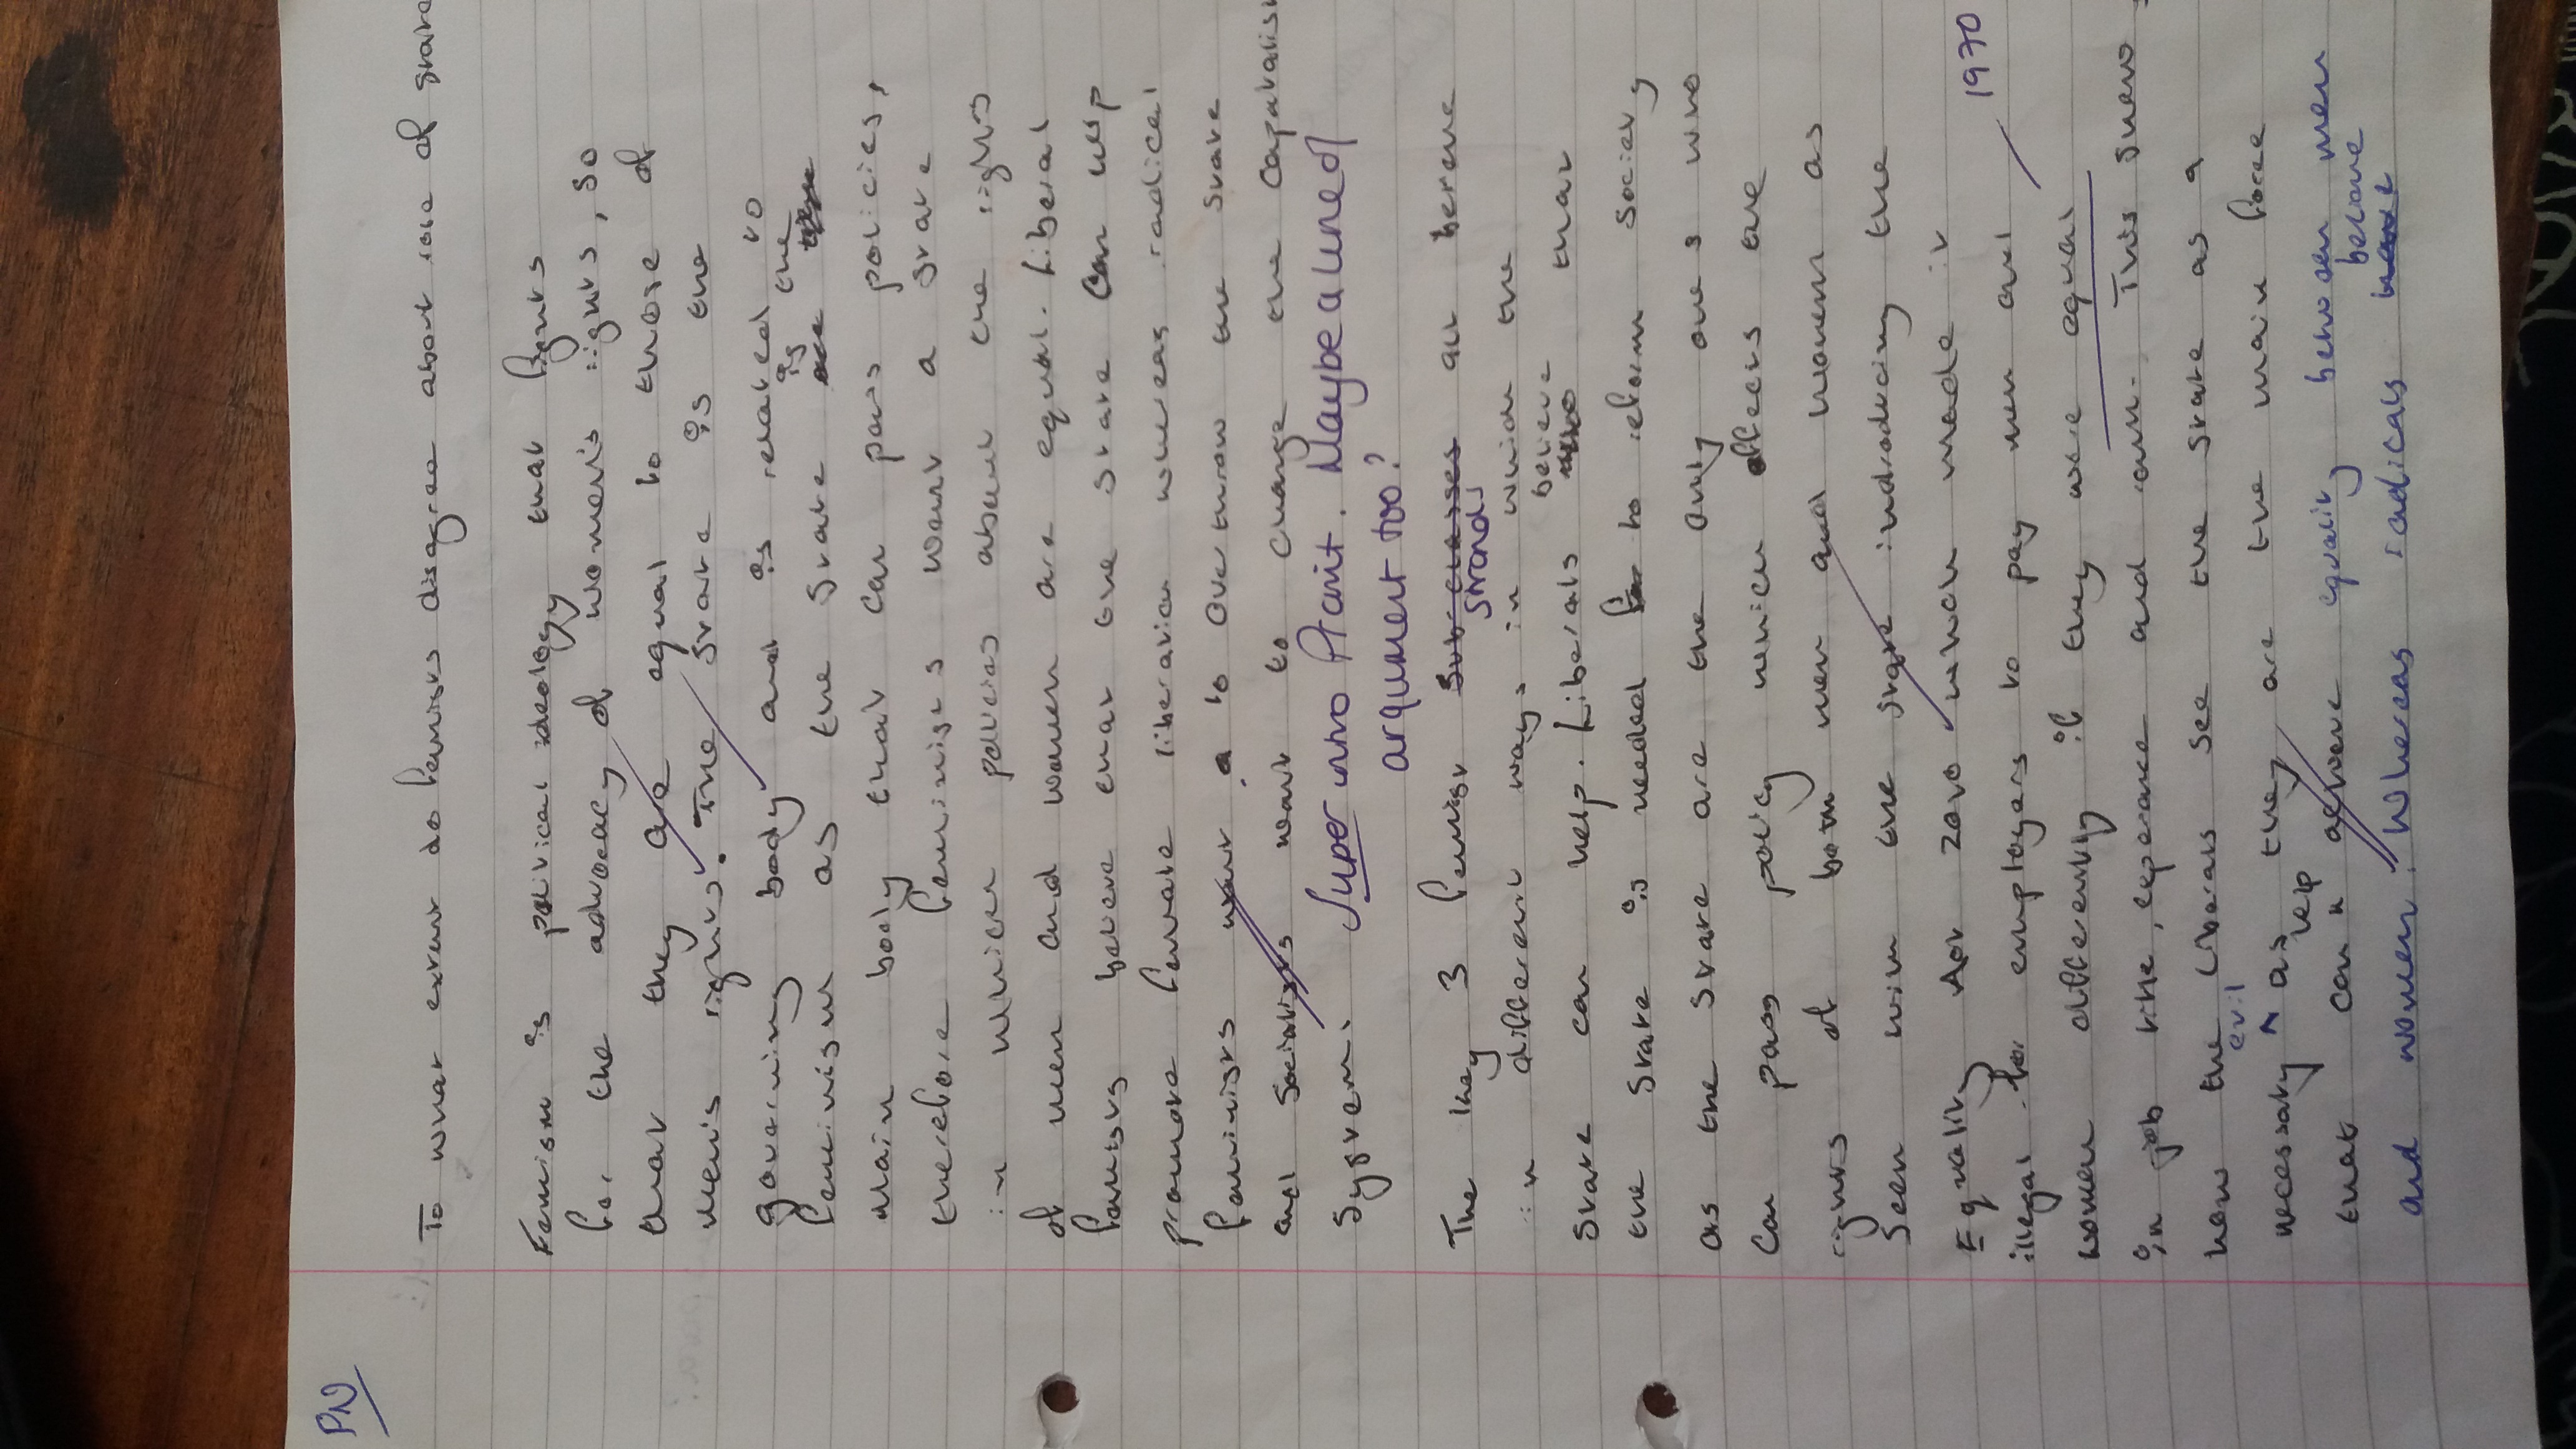 PN
To what extent do femists disagree about role of state
Femism is political ideology that fights
for the advocacy of women's rights, so
that they are equal to those of
men's rights. The state is the
governing body and is related to
feminism as the state is the
main body that can pass policies,
therefore feminists want a state
in which policies about the rights
of men and women are equal. Liberal
femists beleve that the state can help
promote female liberation whereas radical
feminists want a to overthrow the state
and socialists want to change the capatalism
system. Super intro Pranit. Maybe a line of
argument too?
The key 3 femist sub classes strands all beleive
in different ways in which the
state can help. Liberals believe that
the state is needed to reform society
as the state are the only one's who
can pass policy which affects the
rights of both men and women as
seen with the state introducing the
Equality Act 2010 which made it
illegal for employers to pay men and 1970
women differently if they were equal
in job title, experance and rank. This shows
how the liberals see the state as a
necessary evil as they are the main force
that can help achieve equality between men
and women. Whereas radicals have become